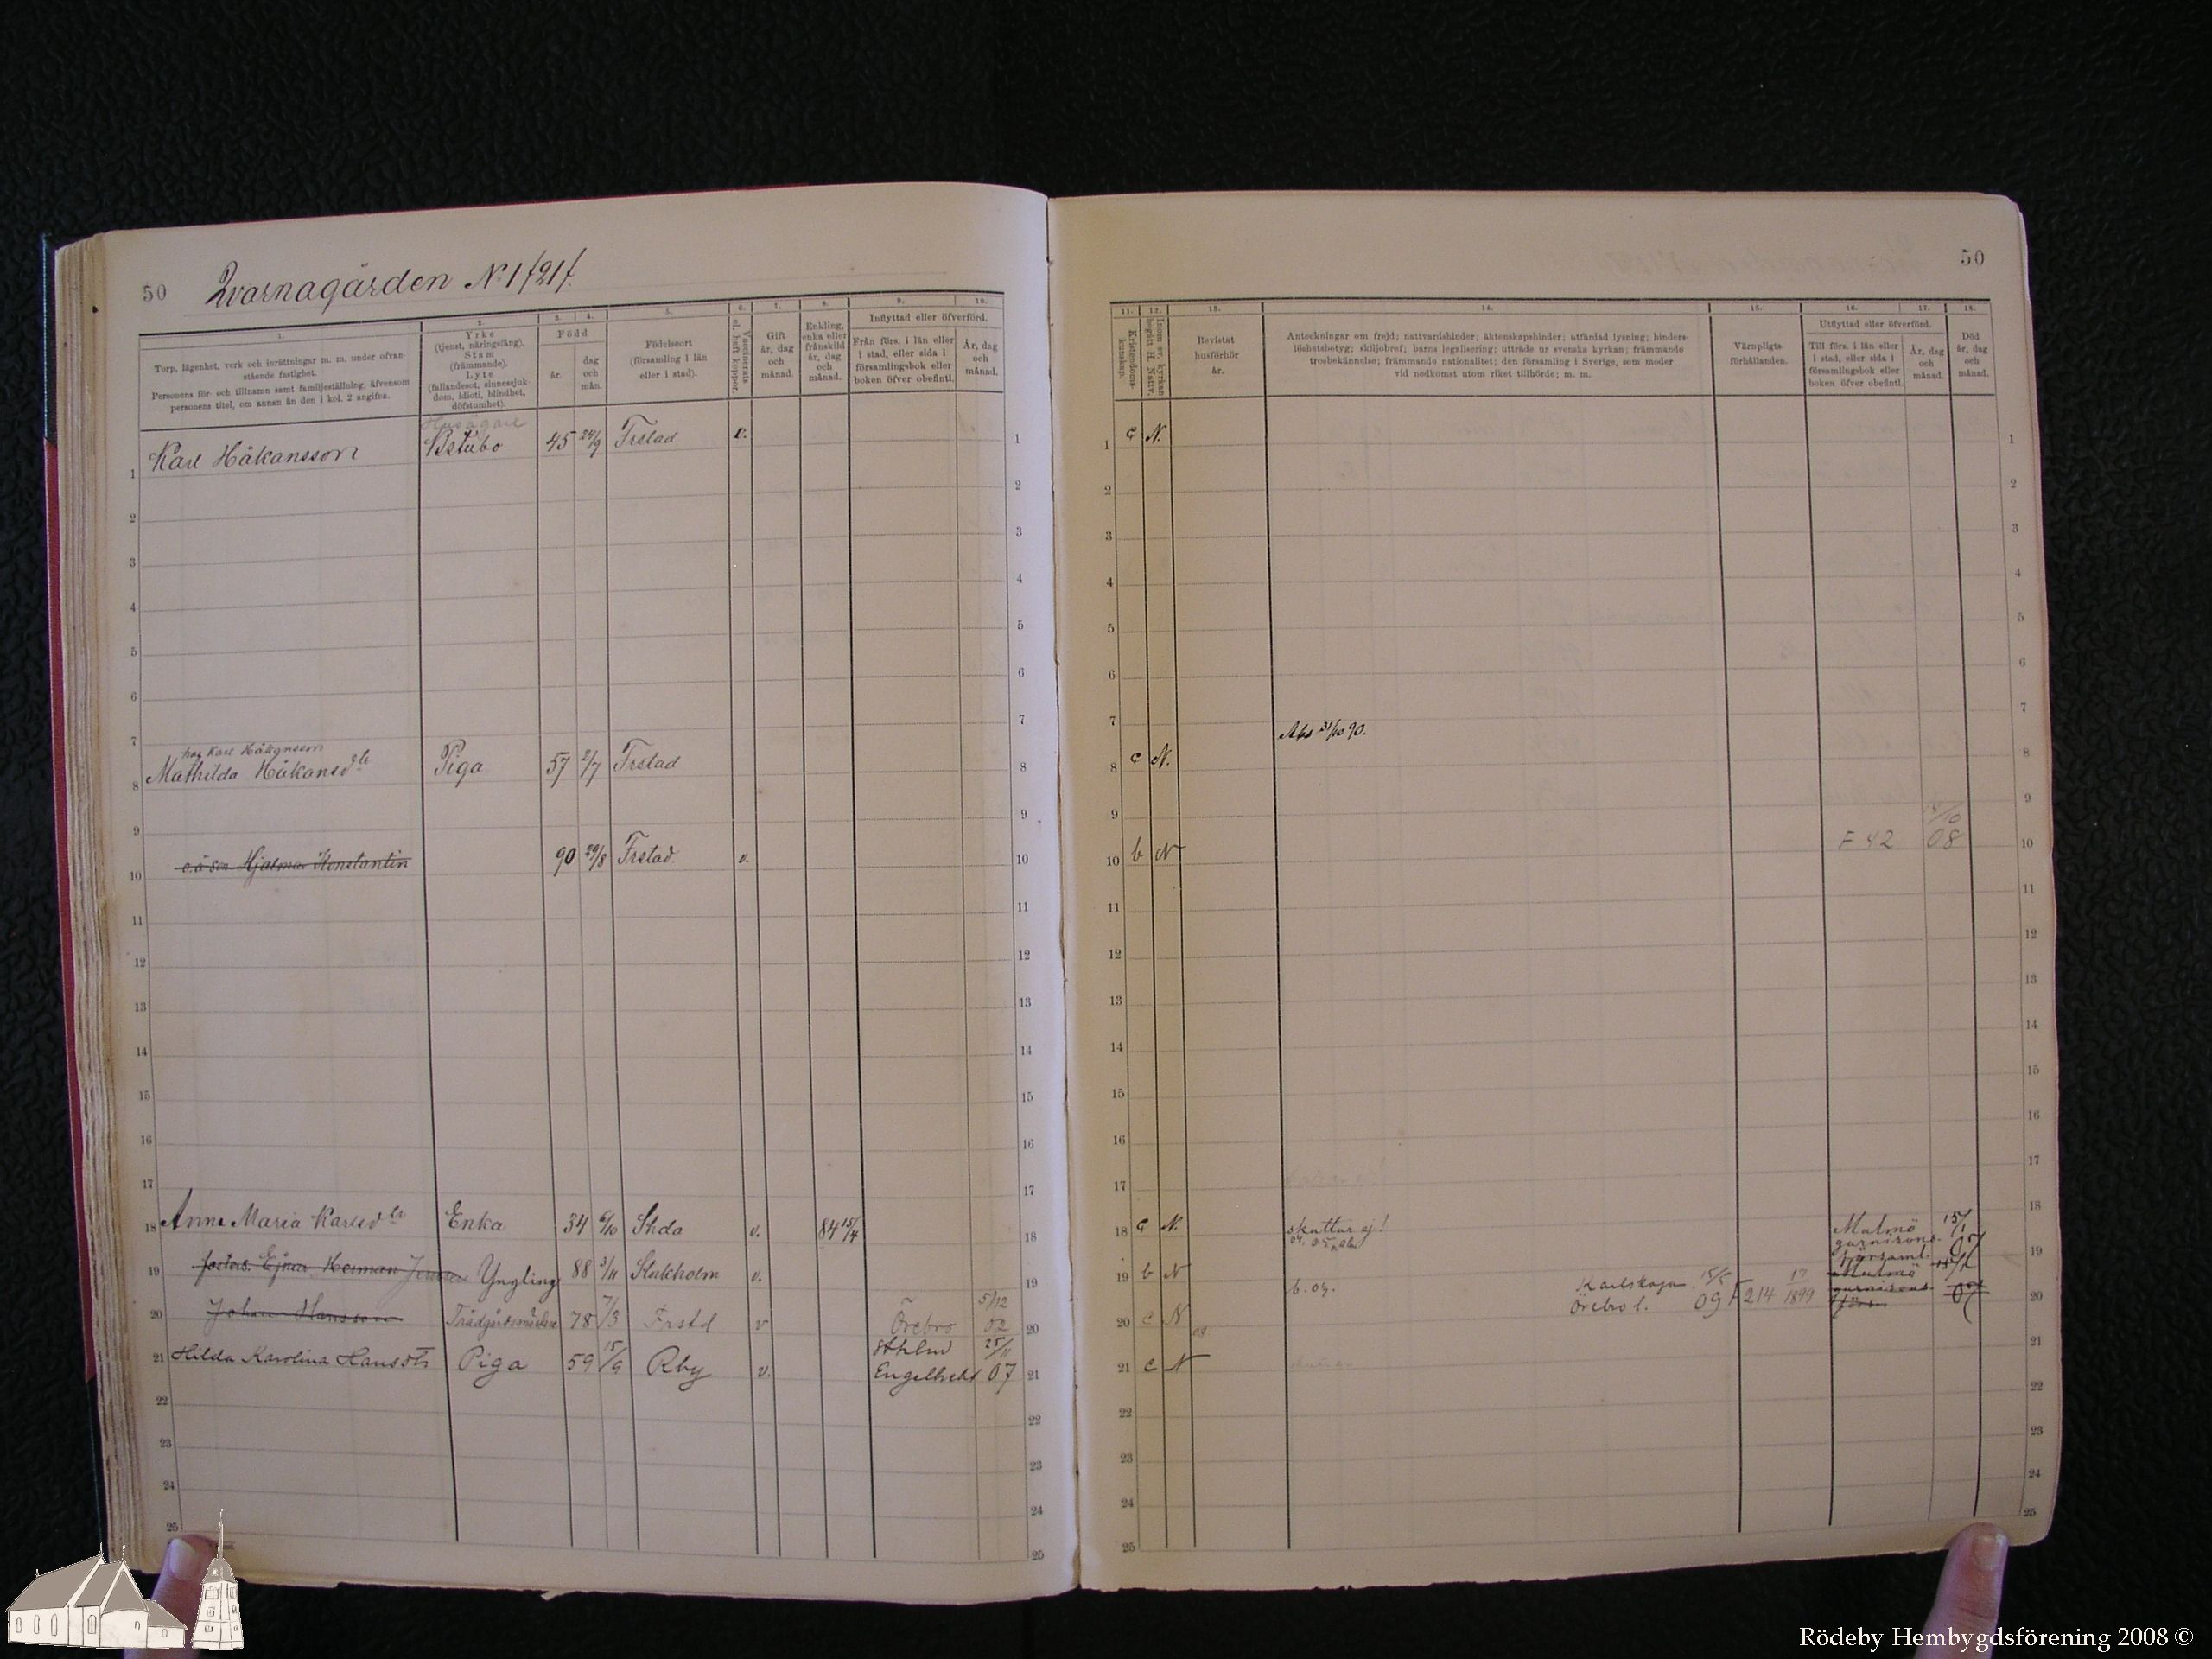 50
Qvarnagården N:1 f21f.
1.
Torp, lägenhet, verk och inrättningar m. m. under ofvan-
stående fastighet.
Personens för- och tillnamn samt familjeställning, äfvensom
personens titel, om annan än den i kol. 2 angifna.
2.
Yrke
(tjenst, näringsfång).
Stam
(främmande).
Lyte
(fallandesot, sinnessjuk-
dom, idioti, blindhet,
döfstumhet).
3. 4.
Född
år.
dag
och
mån.
5.
Födelseort
(församling i län
eller i stad).
6.
Vaccinerats
el. haft koppor.
7.
Gift
år, dag
och
månad.
8.
Enkling,
enka eller
frånskild
år, dag
och
månad.
9. 10.
Inflyttad eller öfverförd.
Från förs. i län eller
i stad, eller sida i
församlingsbok eller
boken öfver obefintl.
År, dag
och
månad.
Husägare
1 Karl Håkansson 45 24/9 Frstad v. 1
2 2
3 3
4 4
5 5
6 6
7 7
Karl Håkansson
8 Mathilda Håkansdtr Piga 57 2/7 Frstad 8
9 9
10 Hjalmar Konstantin 90 29/8 Frstad. v. 10
11 11
12 12
13 13
14 14
15 15
16 16
17 17
18 Anna Maria Karlsdtr Enka 34 6/10 Skda v. 84 15/4 18
19 Herman Yngling 88 3/11 Stokholm v. 19
20 Johan Hansson 78 7/3 Frstd v Örebro 5/12 02 20
21 Hilda Karolina Hansdtr Piga 59 15/9 Rby v. Engelbrekt 25/11 07 21
22 22
23 23
24 24
25 25
50
11.
Kristendoms-
kunskap.
12.
Inom sv. kyrkan
begått H. Nattv.
13.
Bevistat
husförhör
år.
14.
Anteckningar om frejd; nattvardshinder; äktenskapshinder; utfärdad lysning; hinders-
löshetsbetyg; skiljobref; barns legalisering; utträde ur svenska kyrkan; främmande
trosbekännelse; främmande nationalitet; den församling i Sverige, som moder
vid nedkomst utom riket tillhörde; m. m.
15.
Värnpligts-
förhållanden.
16. 17.
Utflyttad eller öfverförd.
Till förs. i län eller
i stad, eller sida i
församlingsbok eller
boken öfver obefintl.
År, dag
och
månad.
18.
Död
år, dag
och
månad.
1 c N. 1
2 2
3 3
4 4
5 5
6 6
7 7
Abs 31/10 90.
8 c N. 8
9 9
10 b N F 42 15/10 08 10
11 11
12 12
13 13
14 14
15 15
16 16
17 17
18 c N. skattar ej! 18
Malmö 15/1
garnisons-
församl. 07
19 b N b. 07. Malmö 19
20 c N Karlskoga 15/5 F 214 17 1899 20
Örebro l. 09
21 c N 21
22 22
23 23
24 24
25 25
Rödeby Hembygdsförening 2008 ©